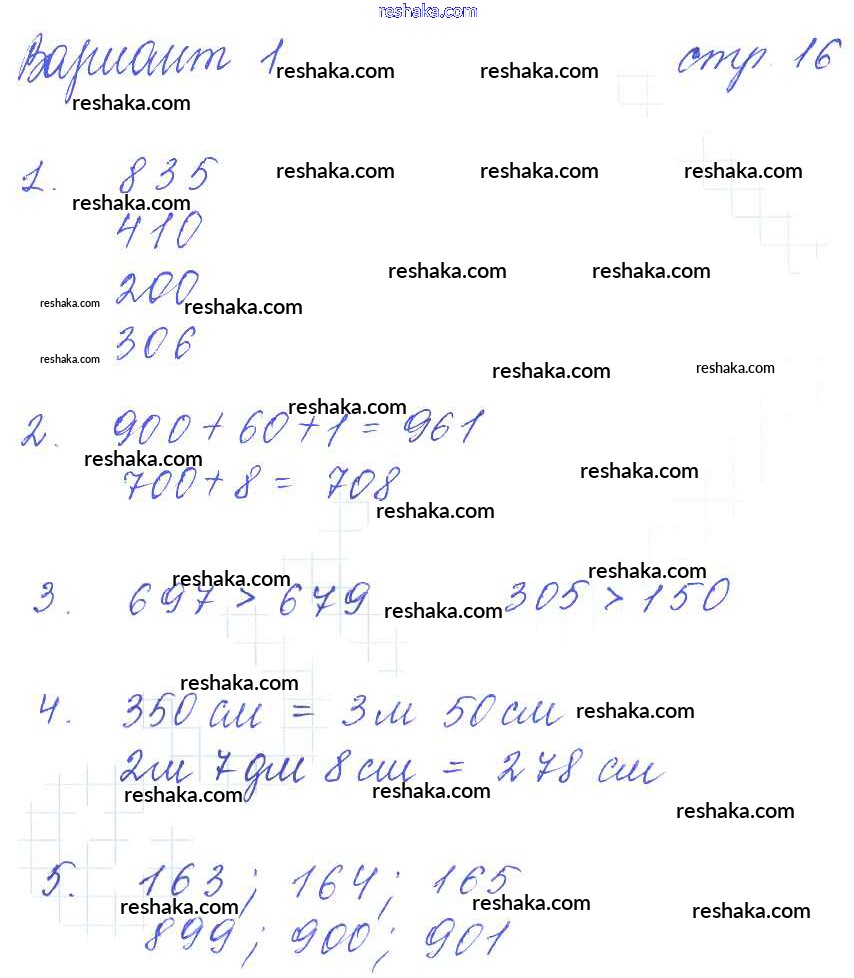 reshaka.com
Вариант 1 reshaka.com reshaka.com стр. 16
reshaka.com
1. 835 reshaka.com reshaka.com reshaka.com
reshaka.com
410
reshaka.com reshaka.com
reshaka.com 200 reshaka.com
reshaka.com 306
reshaka.com reshaka.com
reshaka.com
2. 900 + 60 + 1 = 961
reshaka.com reshaka.com
700 + 8 = 708
reshaka.com
reshaka.com reshaka.com
3. 697 > 679 reshaka.com 305 > 150
reshaka.com
4. 350 см = 3 м 50 см reshaka.com
2 м 7 дм 8 см = 278 см
reshaka.com reshaka.com reshaka.com
5. 163; 164; 165
reshaka.com reshaka.com reshaka.com
899; 900; 901